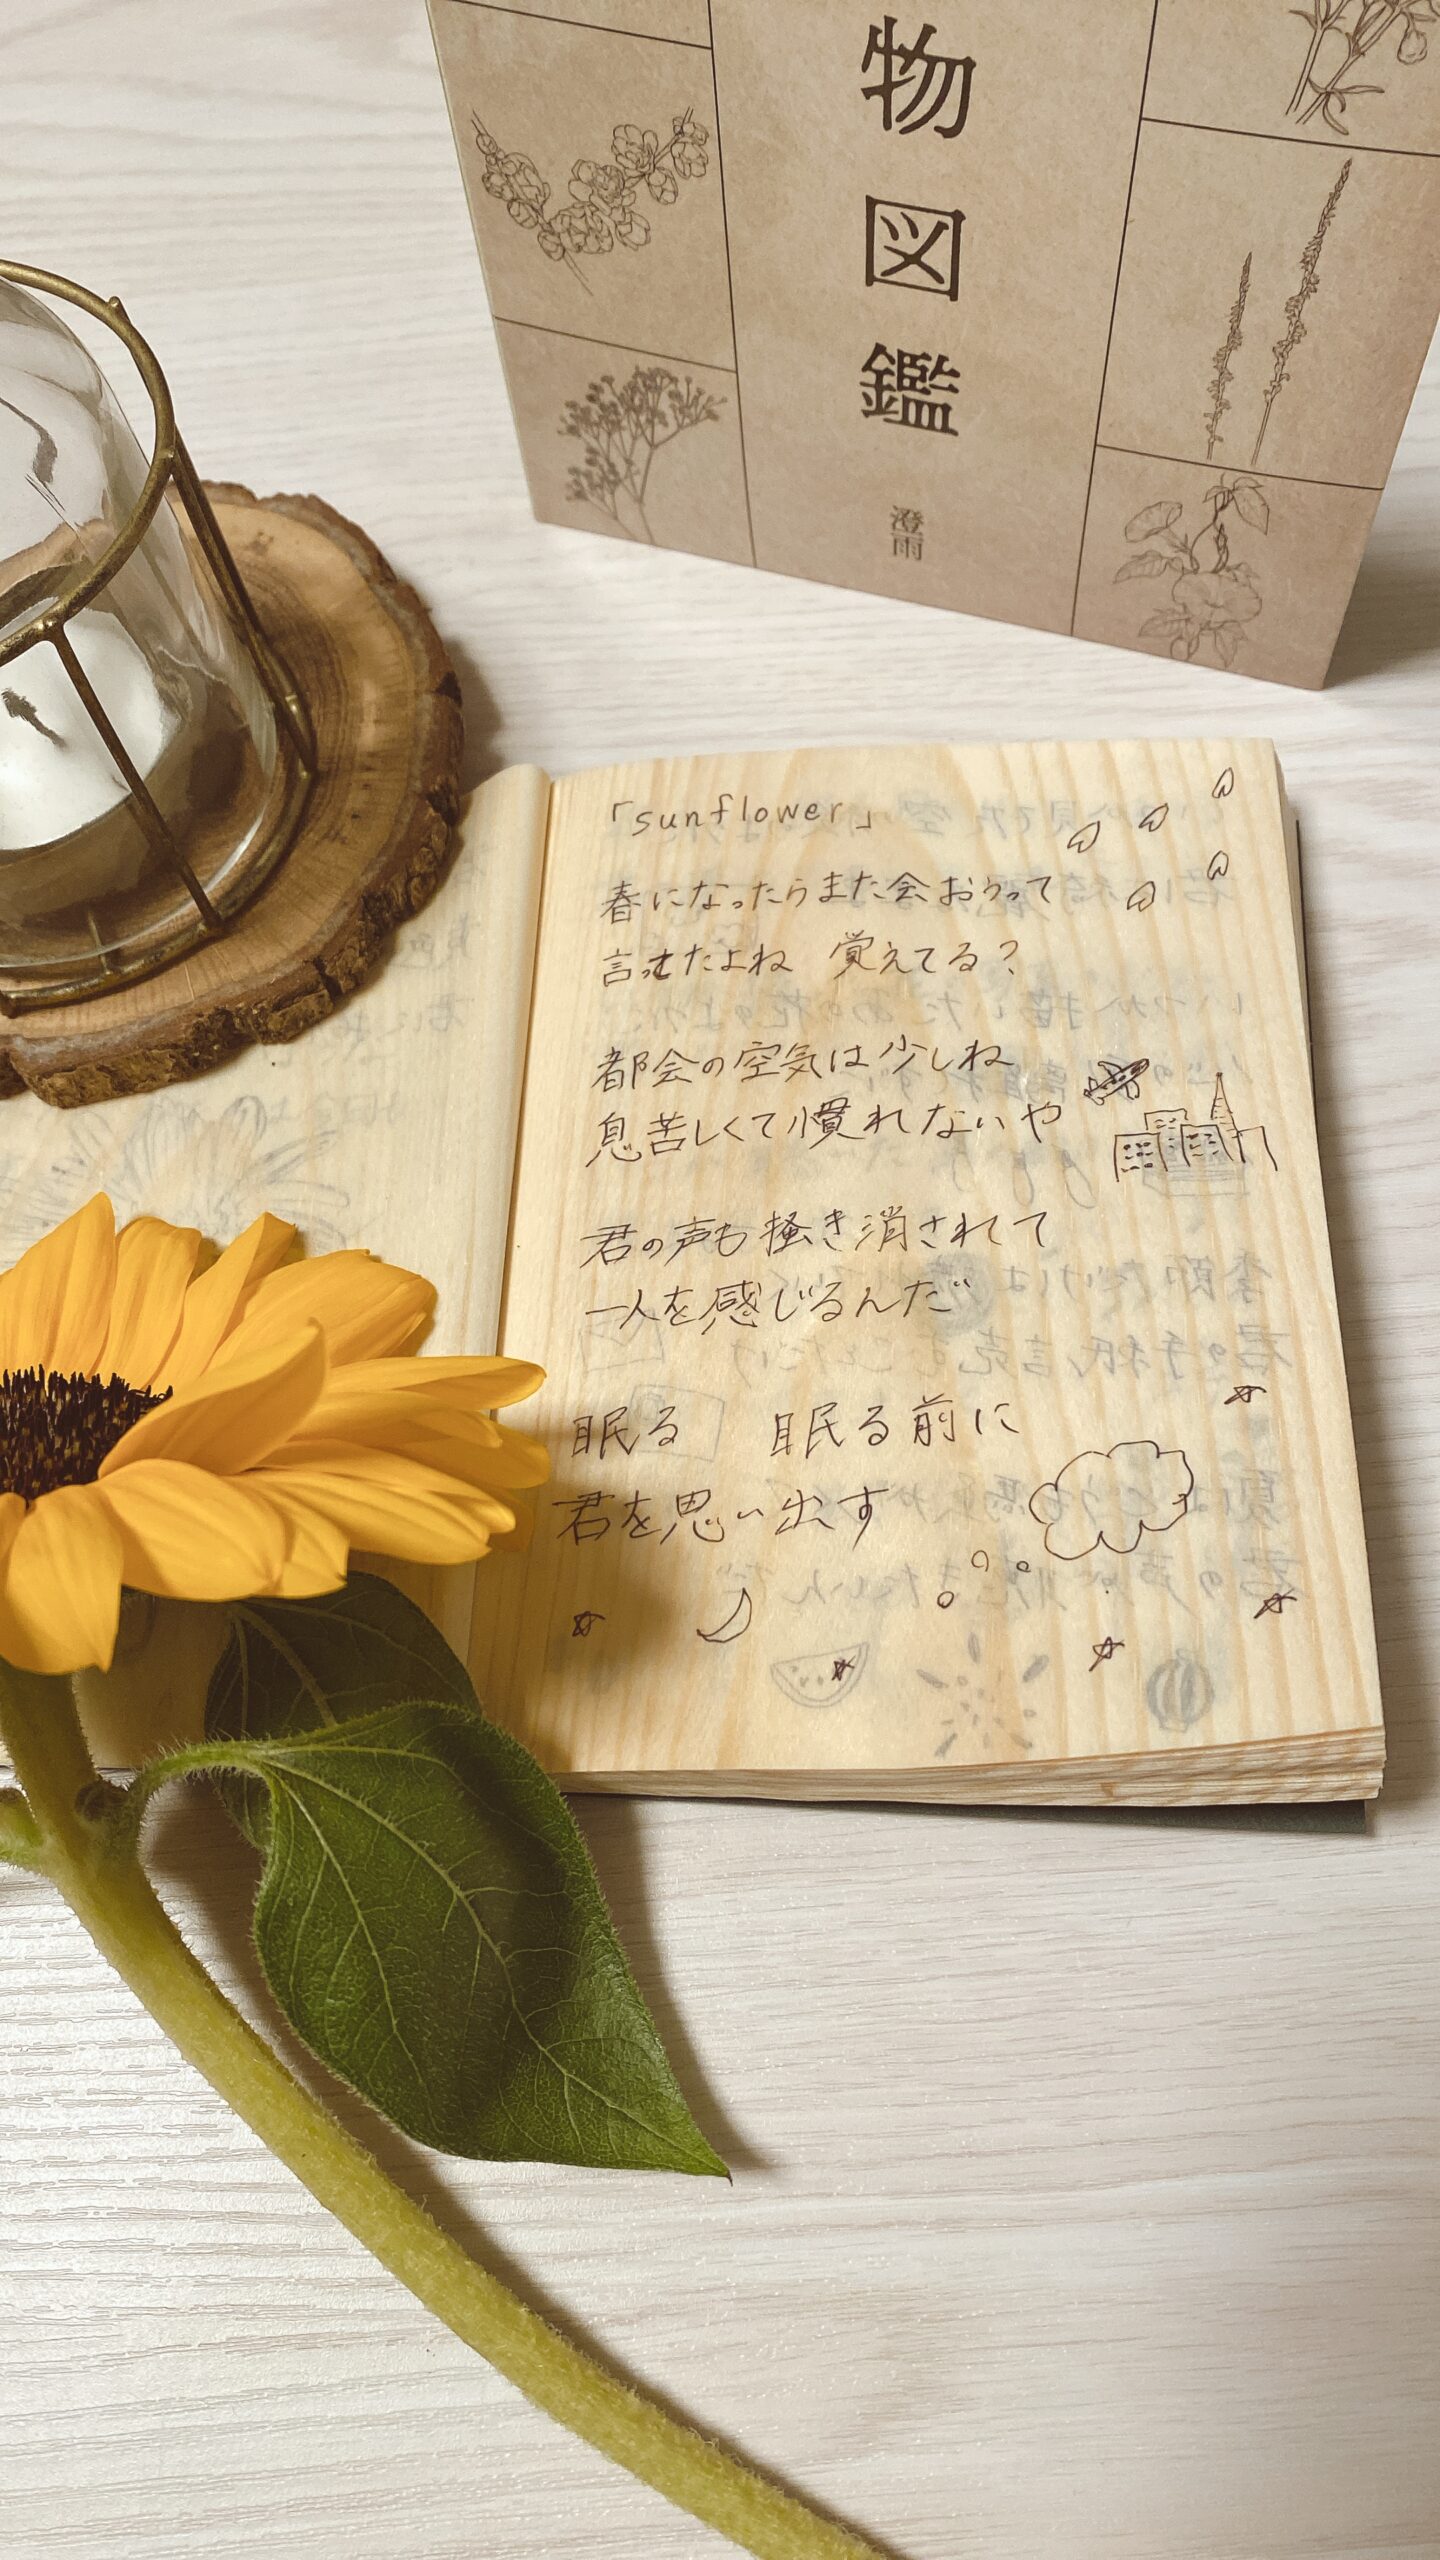 物図鑑
澄雨
「sunflower」
春になったらまた会おうって
言ってたよね 覚えてる?
都会の空気は少しね
息苦しくて慣れないや
君の声も掻き消されてて
一人を感じるんだ
眠る 眠る前に
君を思い出す